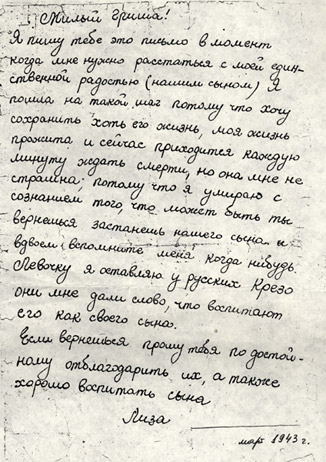 Милый Гриша!
Я пишу тебе это письмо в момент
когда мне нужно расстаться с моей един-
ственной радостью (нашим сыном) Я
пошла на такой шаг потому что хочу
сохранить хоть его жизнь, моя жизнь
прожита и сейчас приходится каждую
минуту ждать смерти, но она мне не
страшна; потому что я умираю с
сознанием того, что может быть ты
вернешься застанешь нашего сына и
вдвоем вспомните меня когда нибудь.
Левочку я оставляю у русских Крезо
они мне дали слово, что воспитают
его как своего сына.
Если вернешься прошу тебя по достой-
ному отблагодарить их, а также
хорошо воспитать сына
Лиза
март 1943 г.